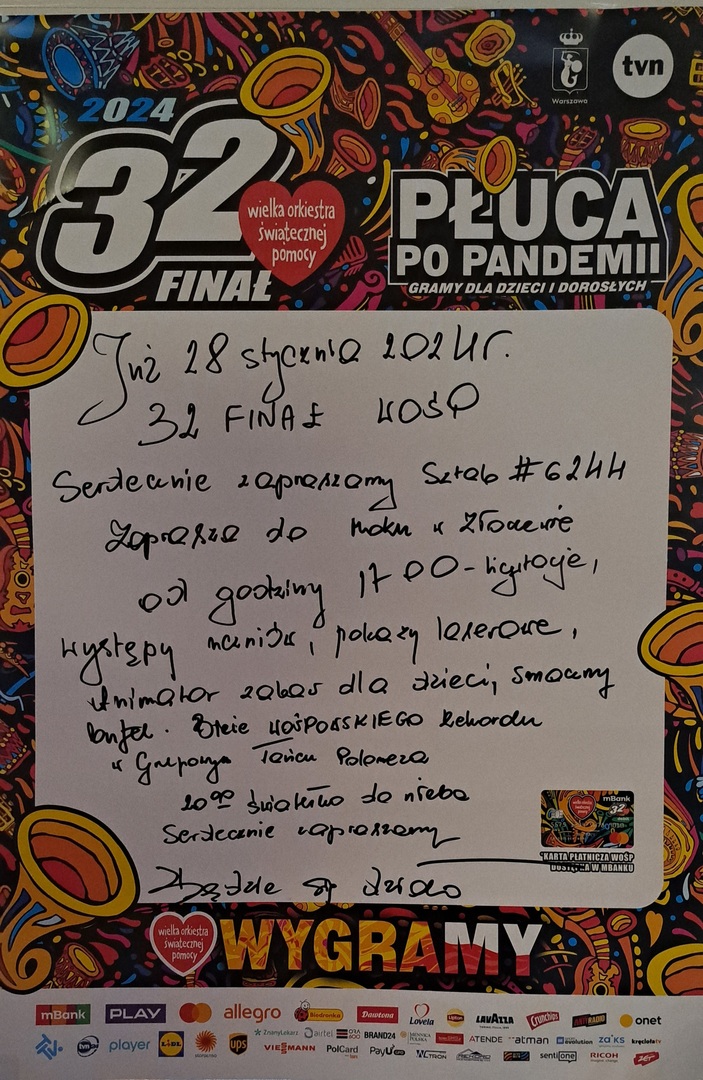 Warszawa
tvn
2024
32
FINAŁ
wielka orkiestra
świątecznej
pomocy
PŁUCA
PO PANDEMII
GRAMY DLA DZIECI I DOROSŁYCH
Już 28 stycznia 2024r.
32 FINAŁ WOŚP
Serdecznie zapraszamy Sztab #6244
Zaprasza do moku w Złoczewie
od godziny 17 00 - licytacje,
występy uczniów, pokazy laserowe,
Animator zabaw dla dzieci, smaczny
bufet. Bicie WOŚPOWSKIEGO Rekordu
w Grupowym Tańcu Poloneza
20 00 światełko do nieba
Serdecznie zapraszamy
będzie się działo
mBank
32
KARTA PŁATNICZA WOŚP
DOSTĘPNA W MBANKU
wielka orkiestra
świątecznej
pomocy
WYGRAMY
mBank PLAY mastercard allegro Biedronka Dawtona Lovela Lipton LAVAZZA Crunchips ANTYRADIO onet
tvn player LIDL ups ZnanyLekarz airtel BRAND24 ATENDE atman evolution zaiks kręciołatv
VIESMANN PolCard PayU sentione RICOH